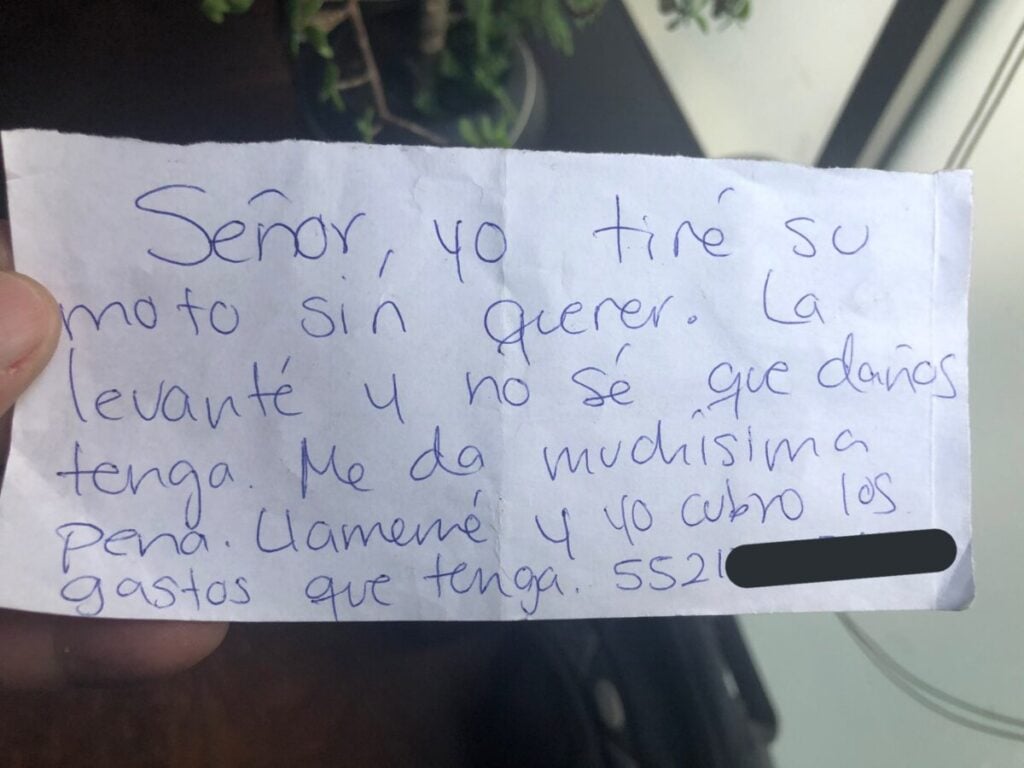 Señor, yo tiré su
moto sin querer. La
levanté y no sé que daños
tenga. Me da muchísima
pena. Llamemé y yo cubro los
gastos que tenga. 5521